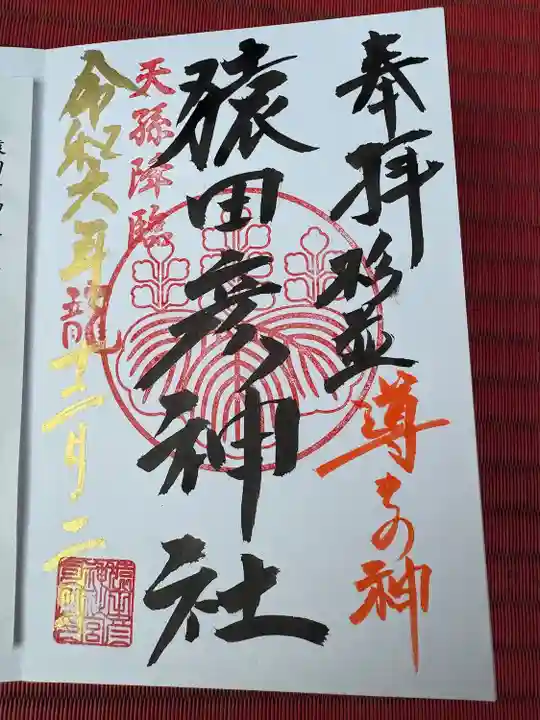 奉拝 杉並 導きの神
猿田彦神社
天孫降臨
令和六年 龍 十二月二